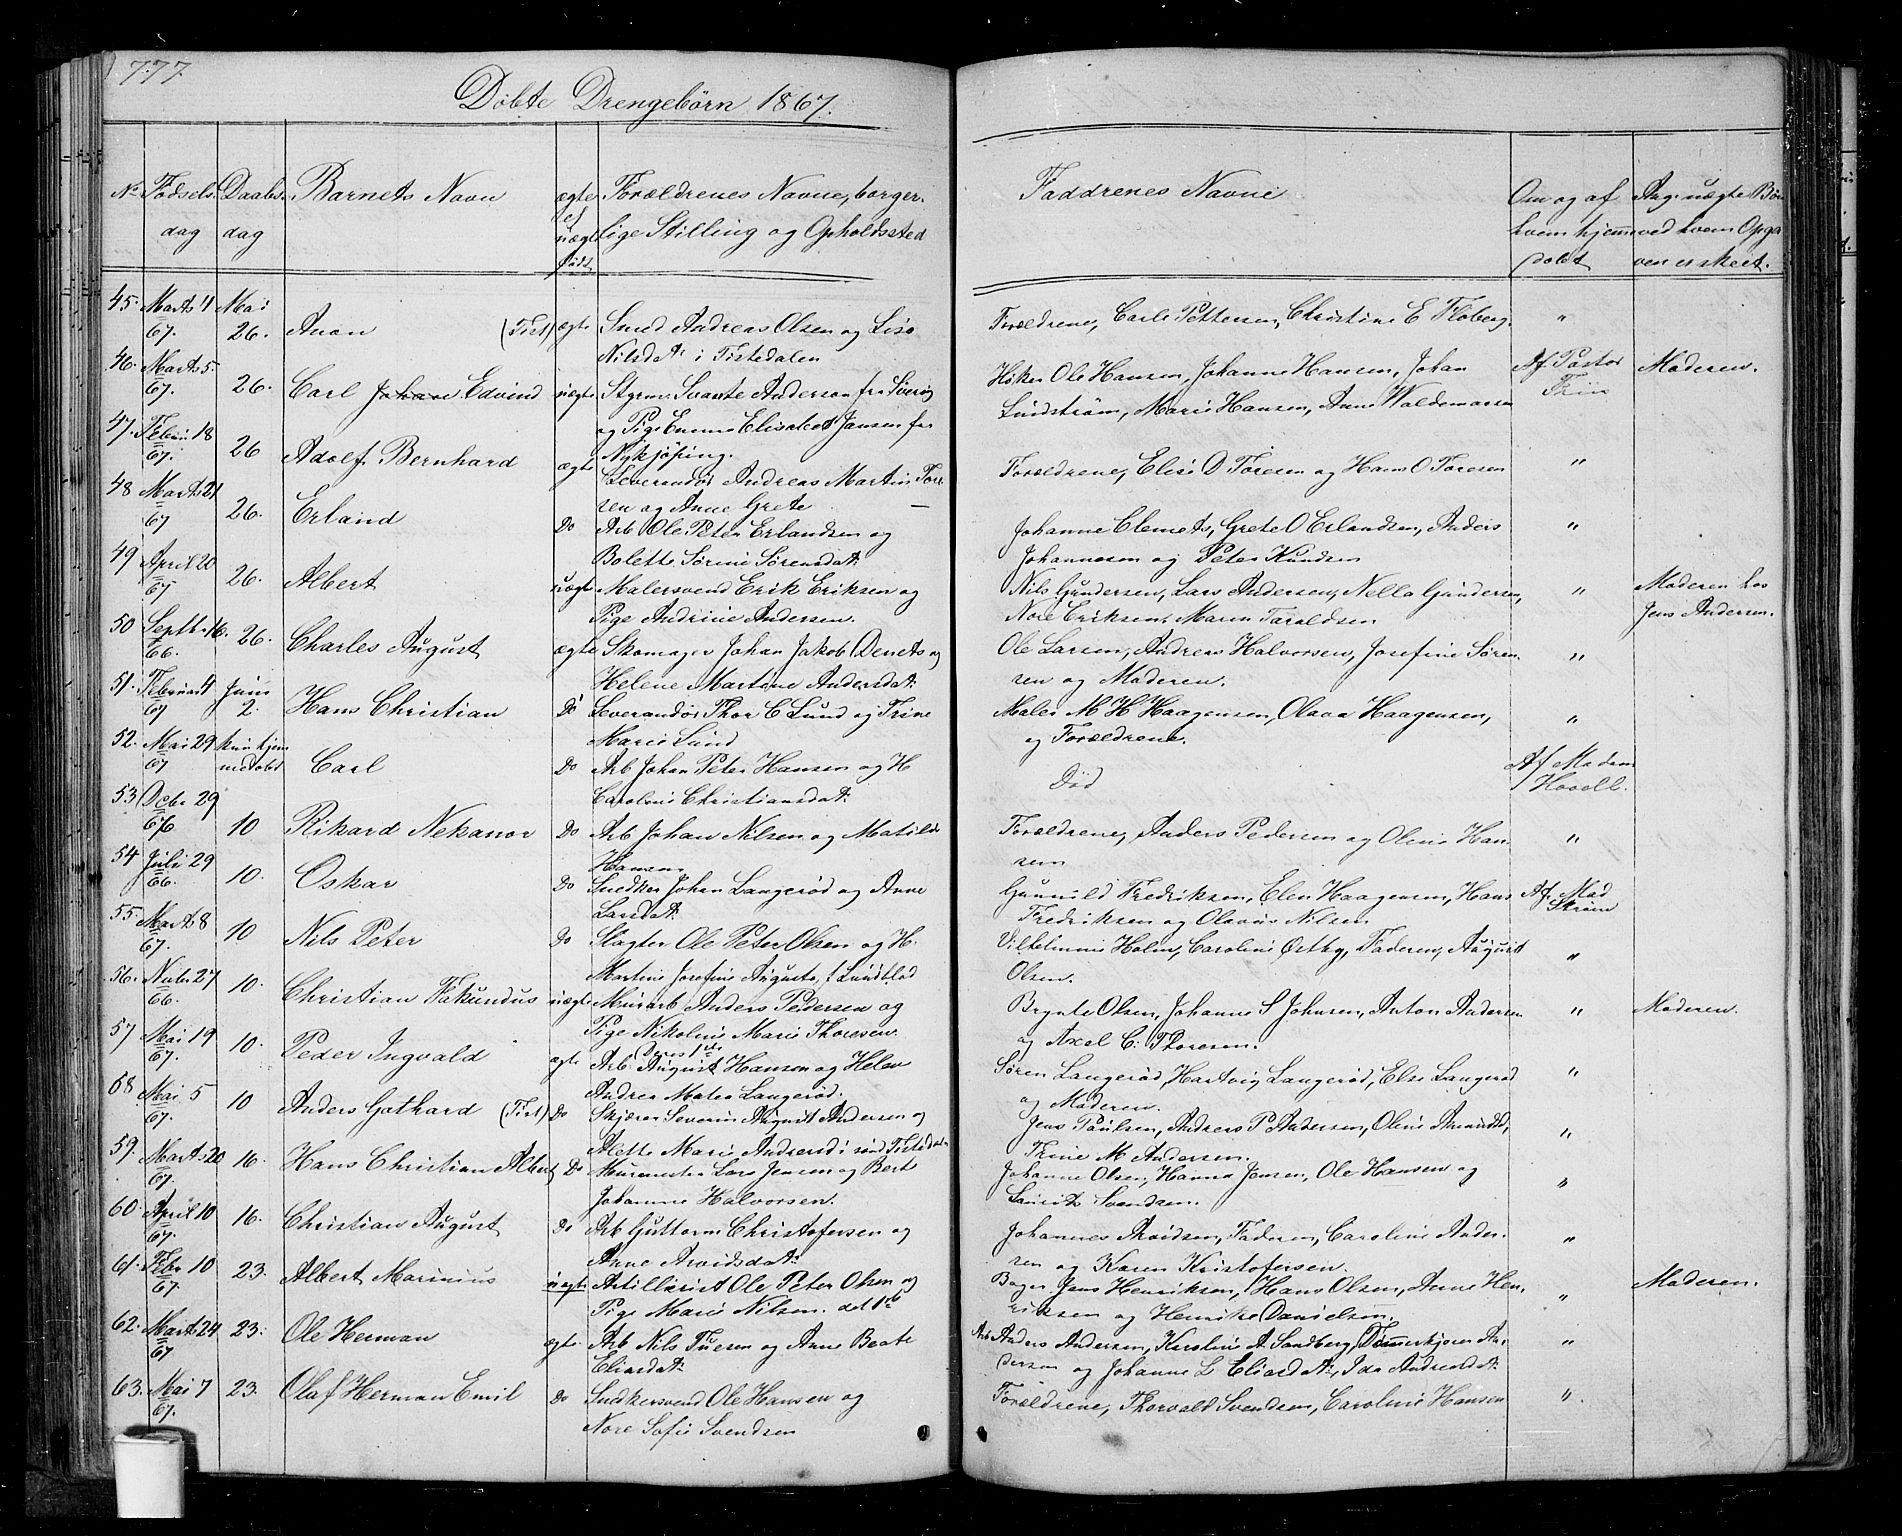 777.
Döbte Drengebörn 1867.
No Fødsels dag
Daabs dag
Barnets Navn
ægte el uægte födt
Forældrenes Navne, borger-
lige Stilling og Opholdssted
Faddrenes Navne
Om og af hvem hjemmedøbt
Ang. uægte Børn ved hvem Opgaven er skeet.
45. Marts 4 67. Mai 26. Anon (Tist) ægte Smed Andreas Olsen og Lise
Nilsdat: i Tistedalen
Forældrene, Carle Pettersen, Christine E Floberg. "
46. Marts 5. 67. 26. Carl Johan Edvind uægte Styrm. Svante Anderson fra Sverig
og Pige Emma Elisabet Jansen fra
Nykjöping.
Høker Ole Hansen, Johanne Hansen, Johan
Lindström, Marie Hansen, Anne Waldemarsen
Af Pastor
Madersen.
47. Februar 18 67. 26 Adolf Bernhard ægte Leverandör Andreas Martin Tore
sen og Anne Grete
Forældrene, Elise O Toresen og Hans O Toresen "
48 Marts 21 67 26. Erland Do Arb Ole Peter Erlandsen og
Bolette Sörine Sörensdat:
Johanne Clemets, Grete O Erlandsen, Anders
Johannesen og Peter Knudsen "
49 April 20 67 26. Albert uægte Malersvend Erik Eriksen og
Pige Andrine Andersen.
Nils Gundersen, Lars Andersen, Nella Gundersen,
Nore Eriksen, Maren Taraldsen "
Moderen hos
Jens Andersen.
50 Septbr 16. 66. 26. Charles August ægte Skomager Johan Jakob Denets og
Helene Martine Andersdat:
Ole Larsen, Andreas Halvorsen, Josefine Sören
sen og Moderen. "
51. Februar 4 67 Juni 2. Hans Christian Do Leverandör Thor C Lund og Trine
Marie Lund
Maler M H Haagensen, Olava Haagensen,
og Forældrene. "
52. Mai 29 67 kun hjem
medöbt Carl Do Arb Johan Peter Hansen og H
Caroline Christiansdat:
Död
Af Madam
Hovell.
53 Octbr 29 66 10 Rikard Nekanor Do Arb Johan Nilsen og Matilde
Hansen
Forældrene, Anders Pedersen og Oline Han
sen "
54 Juli 29 66. 10. Oskar Do Snedker Johan Langeröd og Anne
Larsdat:
Gunnild Fredriksen, Elen Haagensen, Hans
Fredriksen og Olavus Nilsen
Af Mad
Ström
55. Marts 8 67. 10 Nils Peter Do Slagter Ole Peter Olsen og H.
Martine Josefine Augusta f Lundblad
Vilhelmine Holm, Caroline Østby, Faderen, August
Olsen. "
56. Nvbr 27 66. 10. Christian Fakundus uægte Murarb Anders Pedersen og
Pige Nikoline Marie Thoresen.
Deres 1ste
Brynte Olsen, Johanne S Johnsen, Anton Andersen
og Axel C. Thoresen. "
Moderen.
57 Mai 19 67. 10. Peder Ingvald ægte Arb August Hansen og Helen
Andrea Matea Langeröd.
Sören Langeröd, Hartvig Langeröd, Else Langeröd
og Moderen. "
58 Mai 5 67. 10 Anders Gothard (Tist) Do Skjærer Severin August Andersen og
Alette Marie Andersd i Tistedalen
Jens Paulsen, Anders P Andersen, Oline Amundsd,
Trine M Andersen. "
59. Marts 20 67. 16. Hans Christian Albert Do Murmester Lars Jensen og Berte
Johanne Halvorsen.
Johanne Olsen, Hanna Jensen, Ole Hansen og
Laurits Svendsen. "
60. April 10 67. 16. Christian August Do Arb Guttorm Christofersen og
Anne Arvidsdat:
Johannes Arvidsen, Faderen, Caroline Ander-
sen og Karen Kristofersen. "
61. Febr 10 67. 23. Albert Marinius uægte Artillerist Ole Peter Olsen og
Pige Marie Nilsen. det 1ste
Bager Jens Henriksen, Hans Olsen, Anne Hen
riksen og Henrikke Danielsen. "
Moderen.
62. Marts 24 67 23: Ole Herman ægte Arb Nils Tuesen og Anne Beate
Eliasdat:
Arb Anders Andersen, Karoline A. Sandberg, Tömmerkjører An-
derson og Johanne L Eliasdat:, Ida Andreasdat "
63. Mai 7 67. 23. Olaf Herman Emil Do Snedkersvend Ole Hansen og
Nore Sofie Svendsen
Forældrene, Thorvald Svendsen, Caroline Hansen ".